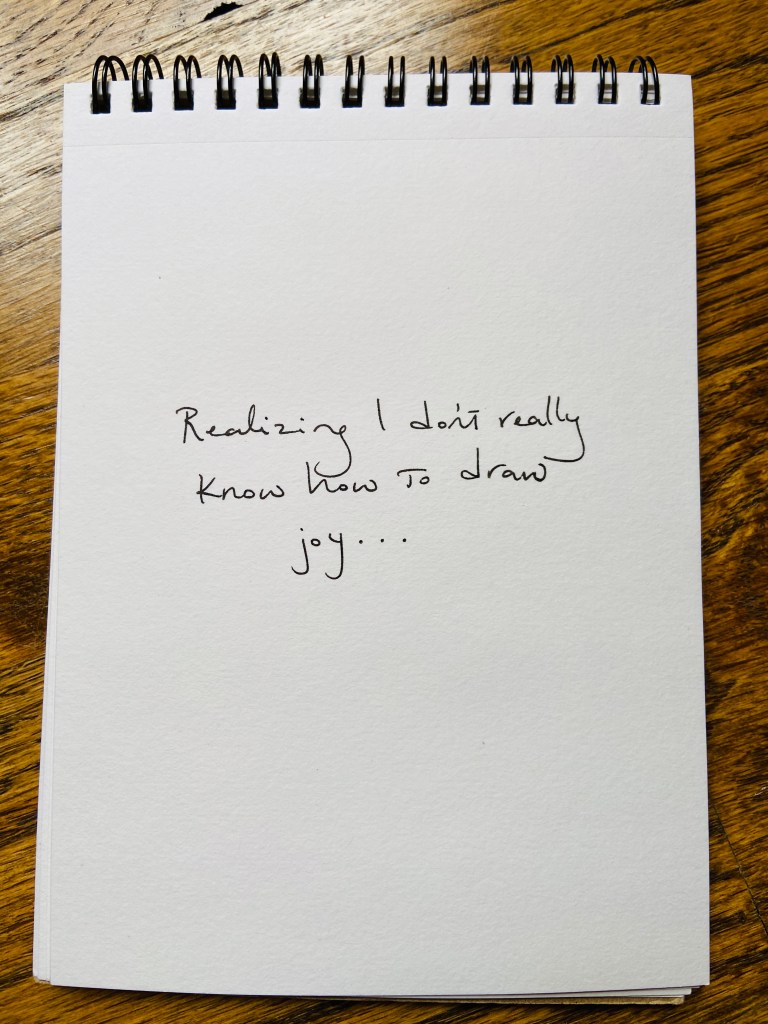 Realizing I don't really
know how to draw
joy...